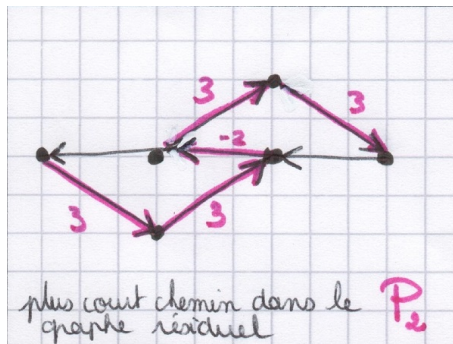 3 3
-2
3 3
plus court chemin dans le P2
graphe résiduel